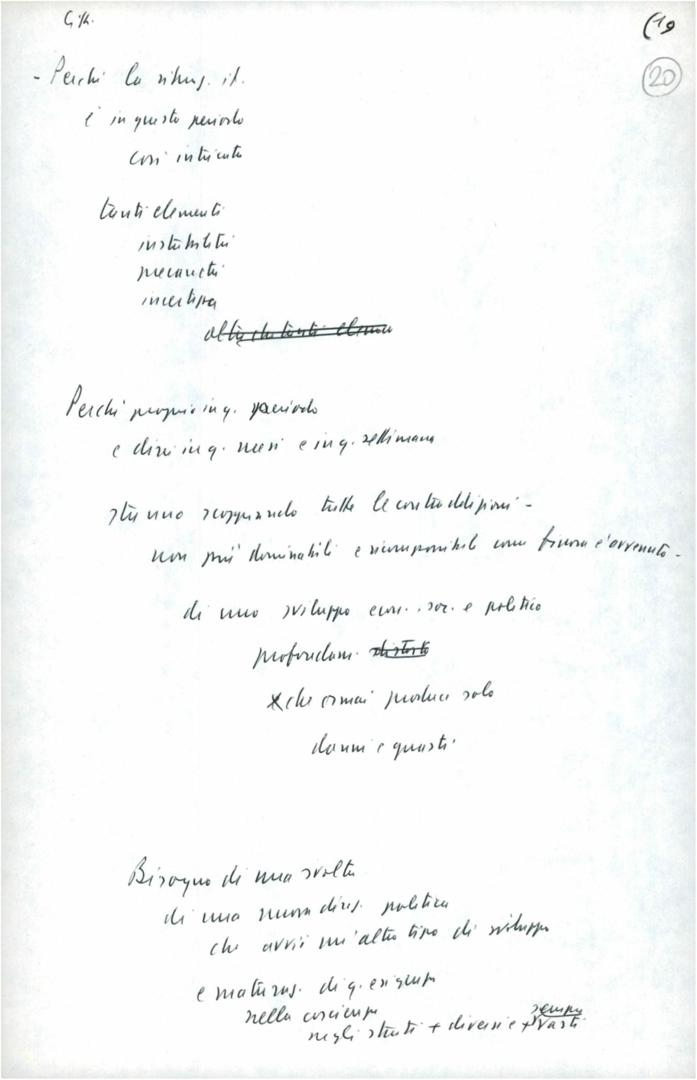 (19
20
- Perchè la situaz. it.
è in questo periodo
così intricata
tanti elementi
instabilità
precarietà
incertezza
altro che tanti elemen
Perchè proprio in q. periodo
e direi in q. mesi e in q. settimane
stanno scoppiando tutte le contraddizioni -
non più dominabili e ricomponibili come finora è avvenuto -
di uno sviluppo econ. soc. e politico
profondam. distorto
che ormai produce solo
danni e guasti
Bisogno di una svolta
di una nuova direz. politica
che avvii un'altro tipo di sviluppo
e maturaz. di q. esigenza
nella coscienza
sempre
negli strati + diversi e + vasti